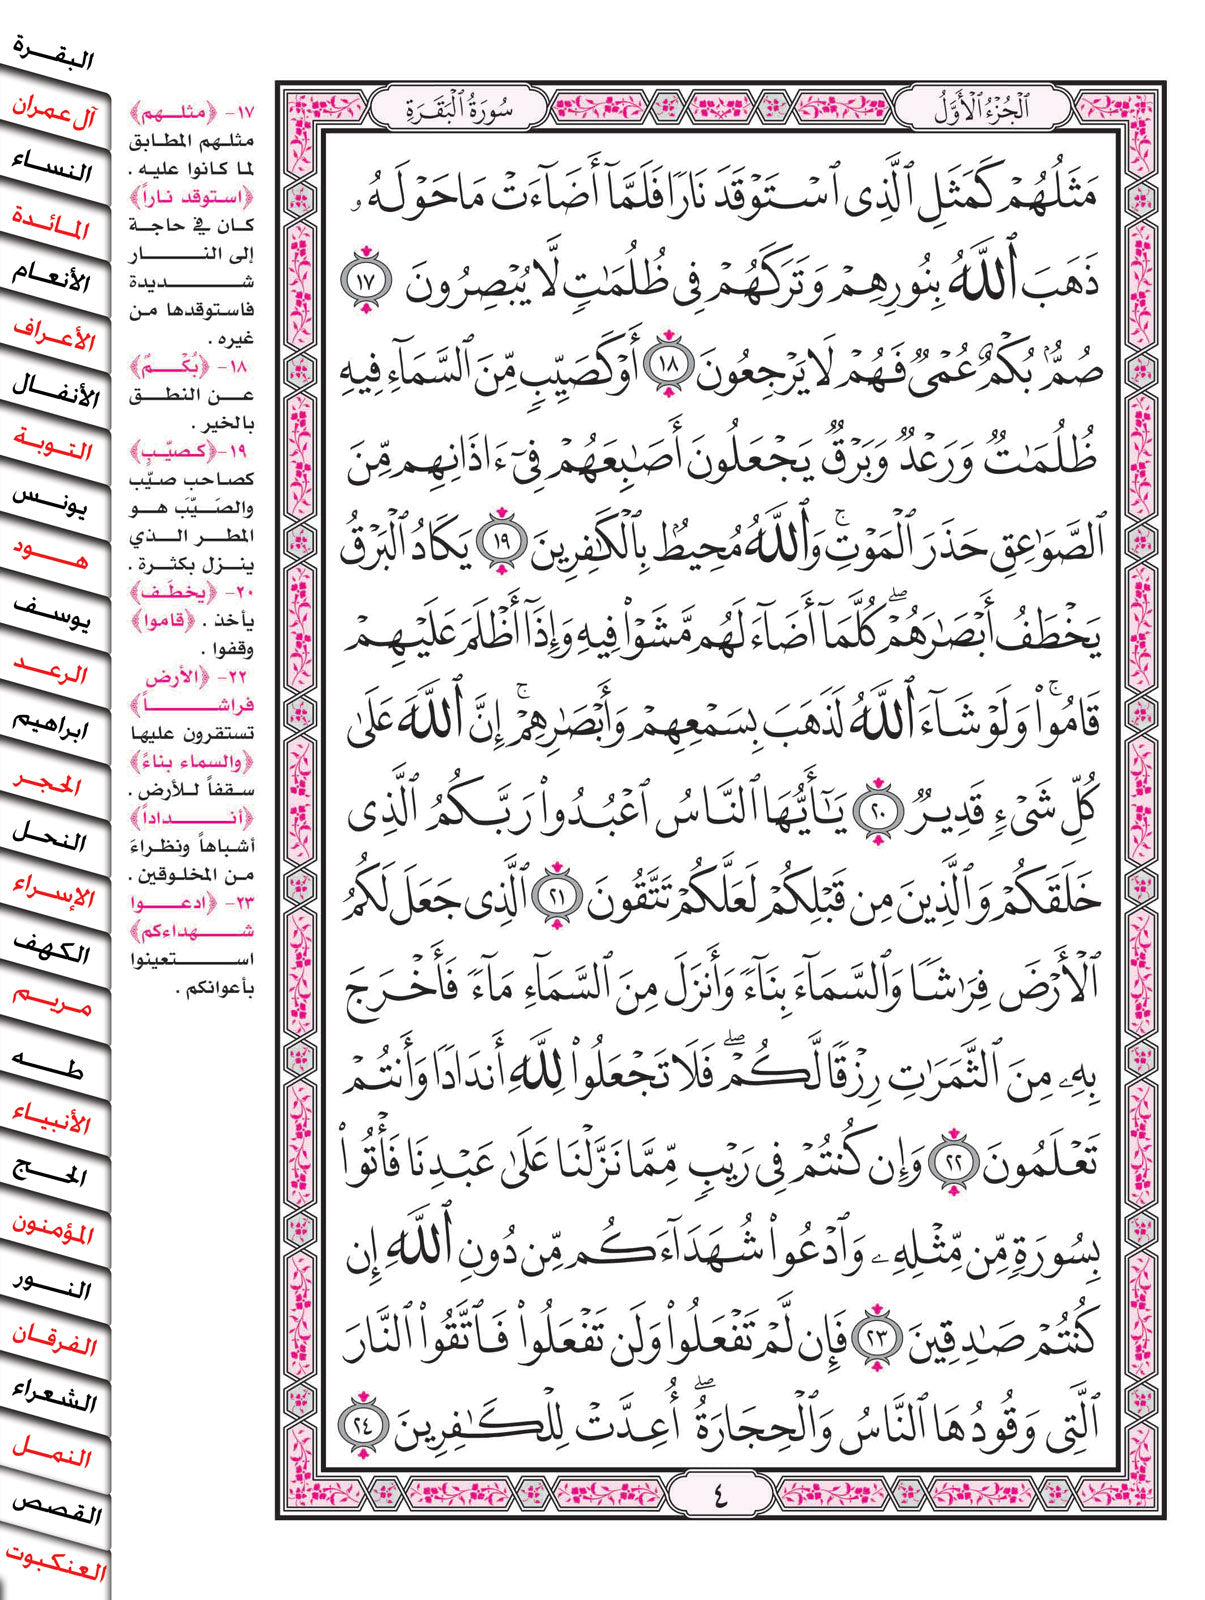 الجُزْءُ الأَوَّلُ
سُورَةُ البَقَرَةِ
مَثَلُهُمْ كَمَثَلِ ٱلَّذِى ٱسْتَوْقَدَ نَارًا فَلَمَّآ أَضَآءَتْ مَا حَوْلَهُۥ
ذَهَبَ ٱللَّهُ بِنُورِهِمْ وَتَرَكَهُمْ فِى ظُلُمَٰتٍ لَّا يُبْصِرُونَ ١٧
صُمٌّۢ بُكْمٌ عُمْىٌ فَهُمْ لَا يَرْجِعُونَ ١٨ أَوْ كَصَيِّبٍ مِّنَ ٱلسَّمَآءِ فِيهِ
ظُلُمَٰتٌ وَرَعْدٌ وَبَرْقٌ يَجْعَلُونَ أَصَٰبِعَهُمْ فِىٓ ءَاذَانِهِم مِّنَ
ٱلصَّوَٰعِقِ حَذَرَ ٱلْمَوْتِ ۚ وَٱللَّهُ مُحِيطٌۢ بِٱلْكَٰفِرِينَ ١٩ يَكَادُ ٱلْبَرْقُ
يَخْطَفُ أَبْصَٰرَهُمْ ۖ كُلَّمَآ أَضَآءَ لَهُم مَّشَوْا۟ فِيهِ وَإِذَآ أَظْلَمَ عَلَيْهِمْ
قَامُوا۟ ۚ وَلَوْ شَآءَ ٱللَّهُ لَذَهَبَ بِسَمْعِهِمْ وَأَبْصَٰرِهِمْ ۚ إِنَّ ٱللَّهَ عَلَىٰ
كُلِّ شَىْءٍ قَدِيرٌ ٢٠ يَٰٓأَيُّهَا ٱلنَّاسُ ٱعْبُدُوا۟ رَبَّكُمُ ٱلَّذِى
خَلَقَكُمْ وَٱلَّذِينَ مِن قَبْلِكُمْ لَعَلَّكُمْ تَتَّقُونَ ٢١ ٱلَّذِى جَعَلَ لَكُمُ
ٱلْأَرْضَ فِرَٰشًا وَٱلسَّمَآءَ بِنَآءً وَأَنزَلَ مِنَ ٱلسَّمَآءِ مَآءً فَأَخْرَجَ
بِهِۦ مِنَ ٱلثَّمَرَٰتِ رِزْقًا لَّكُمْ ۖ فَلَا تَجْعَلُوا۟ لِلَّهِ أَندَادًا وَأَنتُمْ
تَعْلَمُونَ ٢٢ وَإِن كُنتُمْ فِى رَيْبٍ مِّمَّا نَزَّلْنَا عَلَىٰ عَبْدِنَا فَأْتُوا۟
بِسُورَةٍ مِّن مِّثْلِهِۦ وَٱدْعُوا۟ شُهَدَآءَكُم مِّن دُونِ ٱللَّهِ إِن
كُنتُمْ صَٰدِقِينَ ٢٣ فَإِن لَّمْ تَفْعَلُوا۟ وَلَن تَفْعَلُوا۟ فَٱتَّقُوا۟ ٱلنَّارَ
ٱلَّتِى وَقُودُهَا ٱلنَّاسُ وَٱلْحِجَارَةُ ۖ أُعِدَّتْ لِلْكَٰفِرِينَ ٢٤
٤
١٧- ﴿مثلهم﴾
مثلهم المطابق
لما كانوا عليه .
﴿استوقد ناراً﴾
كان في حاجة
إلى النار
شديدة
فاستوقدها من
غيره .
١٨- ﴿بُكْمٌ﴾
عن النطق
بالخير .
١٩- ﴿كصيّبٍ﴾
كصاحب صيّب
والصَيّبَ هو
المطر الذي
ينزل بكثرة .
٢٠- ﴿يخطَف﴾
يأخذ . ﴿قاموا﴾
وقفوا .
٢٢- ﴿الأرض
فراشاً﴾
تستقرون عليها
﴿والسماء بناءً﴾
سقفاً للأرض .
﴿أنداداً﴾
أشباهاً ونظراءَ
من المخلوقين .
٢٣- ﴿ادعوا
شهداءكم﴾
استعينوا
بأعوانكم .
البقرة
آل عمران
النساء
المائدة
الأنعام
الأعراف
الأنفال
التوبة
يونس
هود
يوسف
الرعد
ابراهيم
الحجر
النحل
الإسراء
الكهف
مريم
طه
الأنبياء
الحج
المؤمنون
النور
الفرقان
الشعراء
النمل
القصص
العنكبوت